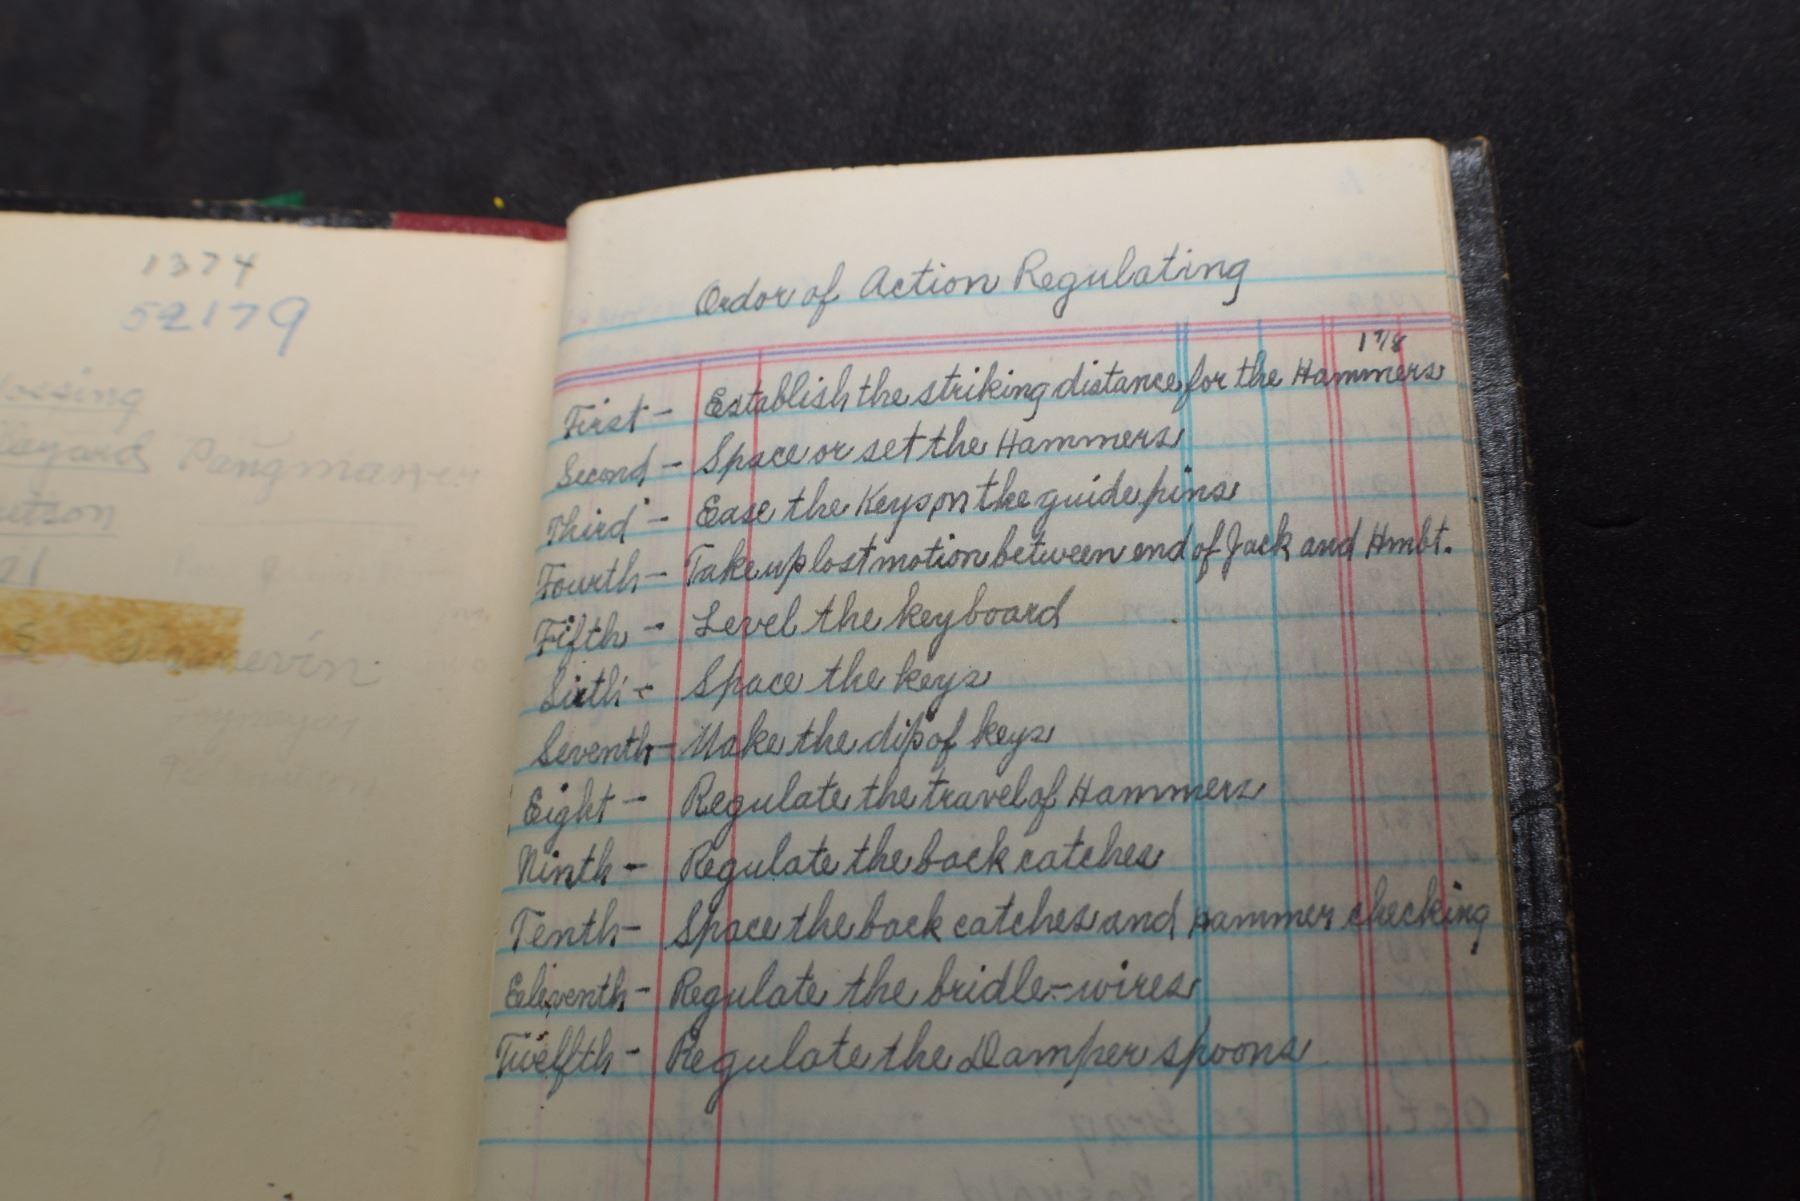 1374
52179
Pangmanver
evin
Ordor of Action Regulating
1 7/8
First - Establish the striking distance for the Hammers
Second - Space or set the Hammers
Third - Ease the Keys on the guide pins
Fourth - Take up lost motion between end of Jack and Hmbt.
Fifth - Level the keyboard
Sixth - Space the keys
Seventh - Make the dip of keys
Eight - Regulate the travel of Hammers
Ninth - Regulate the back catches
Tenth - Space the back catches and Hammer checking
Eeleventh - Regulate the bridle-wires
Twelfth - Regulate the Damper spoons